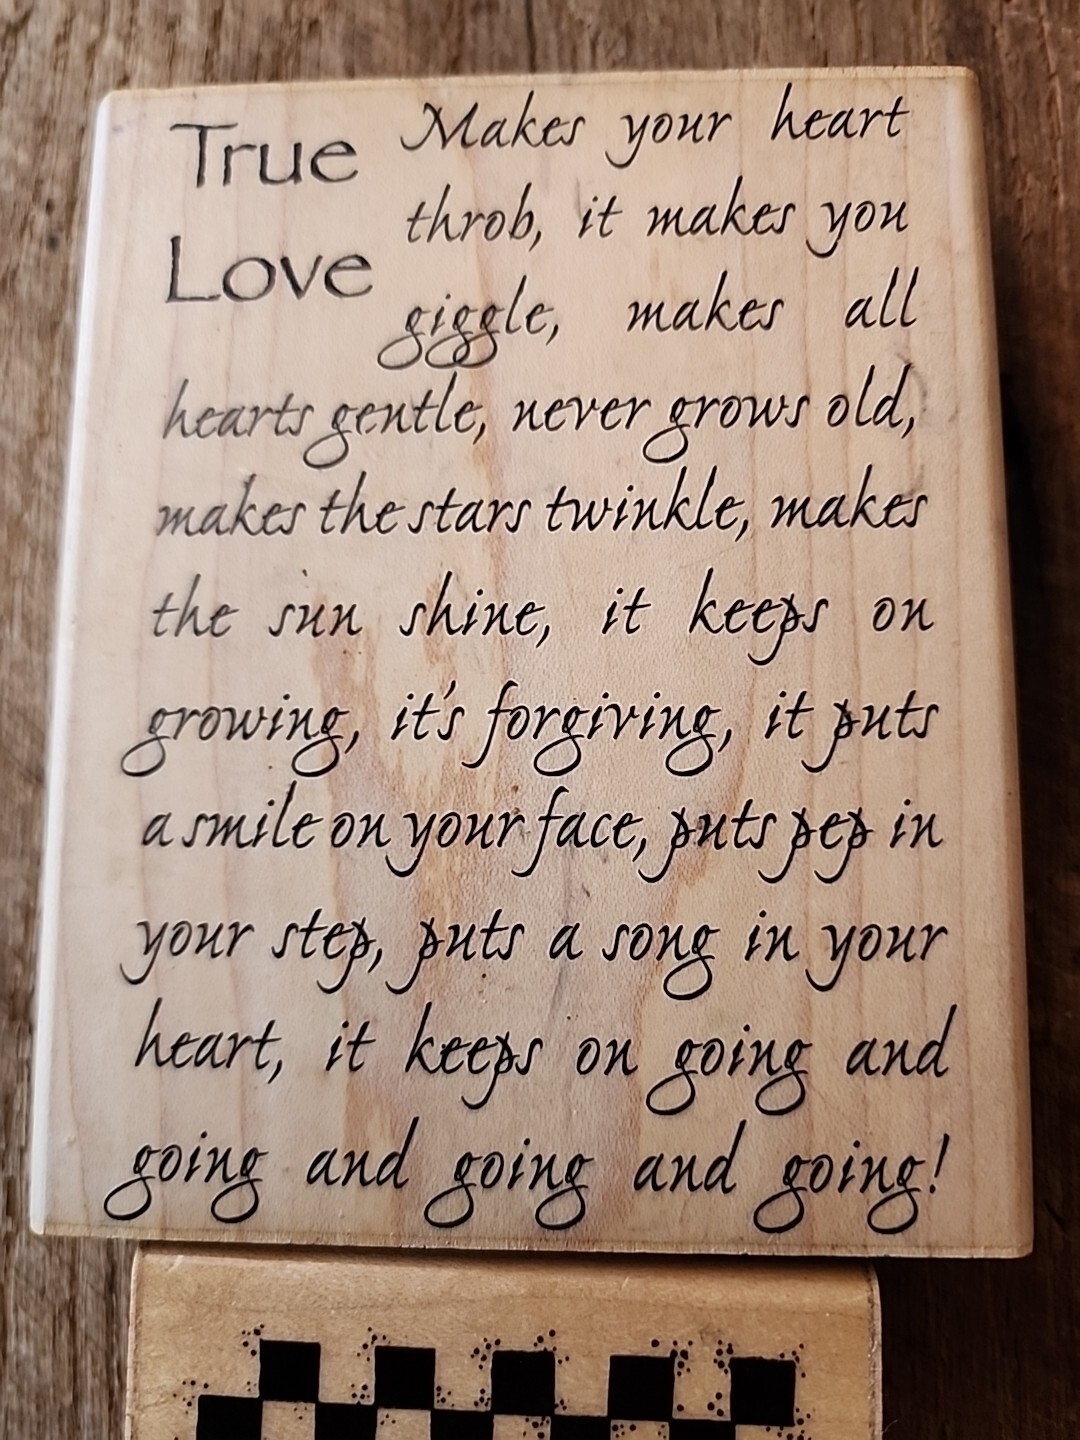 True Makes your heart
throb, it makes you
Love
giggle, makes all
hearts gentle, never grows old,
makes the stars twinkle, makes
the sun shine, it keeps on
growing, it's forgiving, it puts
a smile on your face, puts pep in
your step, puts a song in your
heart, it keeps on going and
going and going and going!